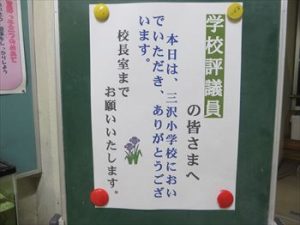 学校評議員
の皆さまへ
本日は、三沢小学校におい
でいただき、ありがとうござ
います。
校長室まで
お願いいたします。